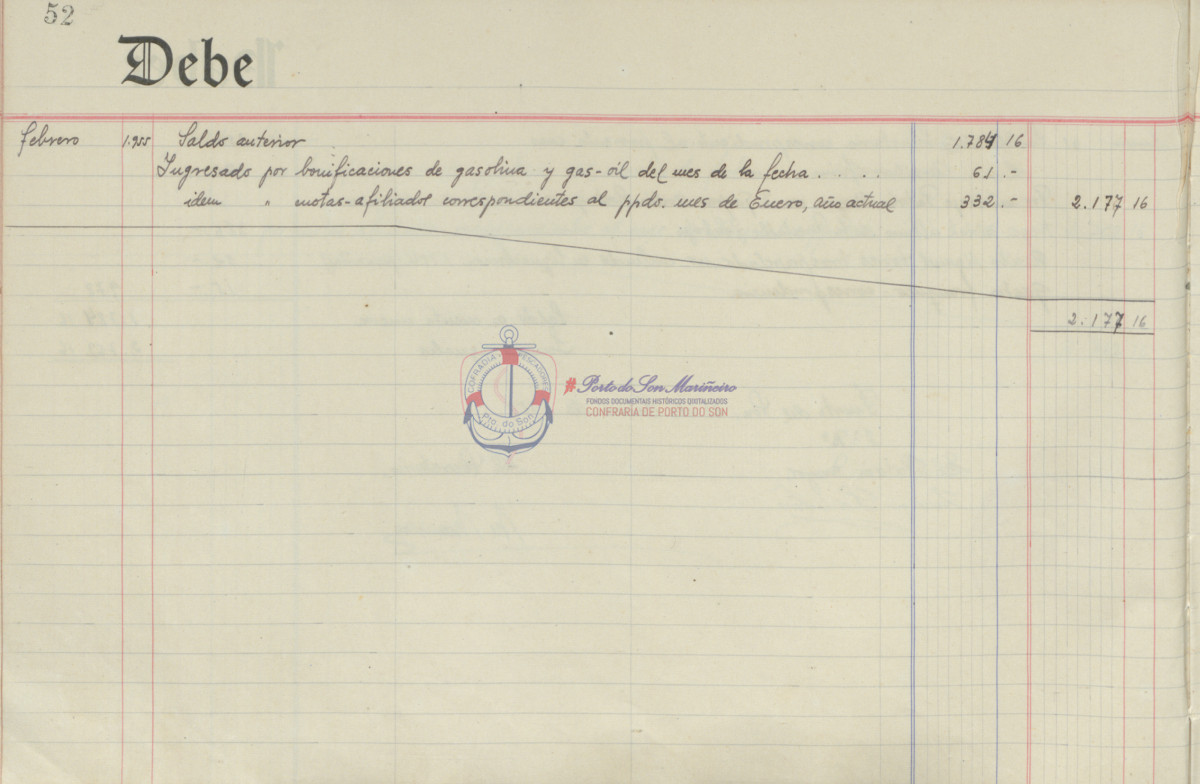 52
Debe
febrero 1.955 Saldo anterior 1.784 16
Ingresado por bonificaciones de gasolina y gas-oil del mes de la fecha . . . . 61.-
idem " motas-afiliados correspondientes al ppdo. mes de Enero, año actual 332.- 2.177 16
2.177 16
COFRADIA PESCADORES
Pto. do Son
#Porto do Son Mariñeiro
FONDOS DOCUMENTAIS HISTÓRICOS DIXITALIZADOS
CONFRARÍA DE PORTO DO SON